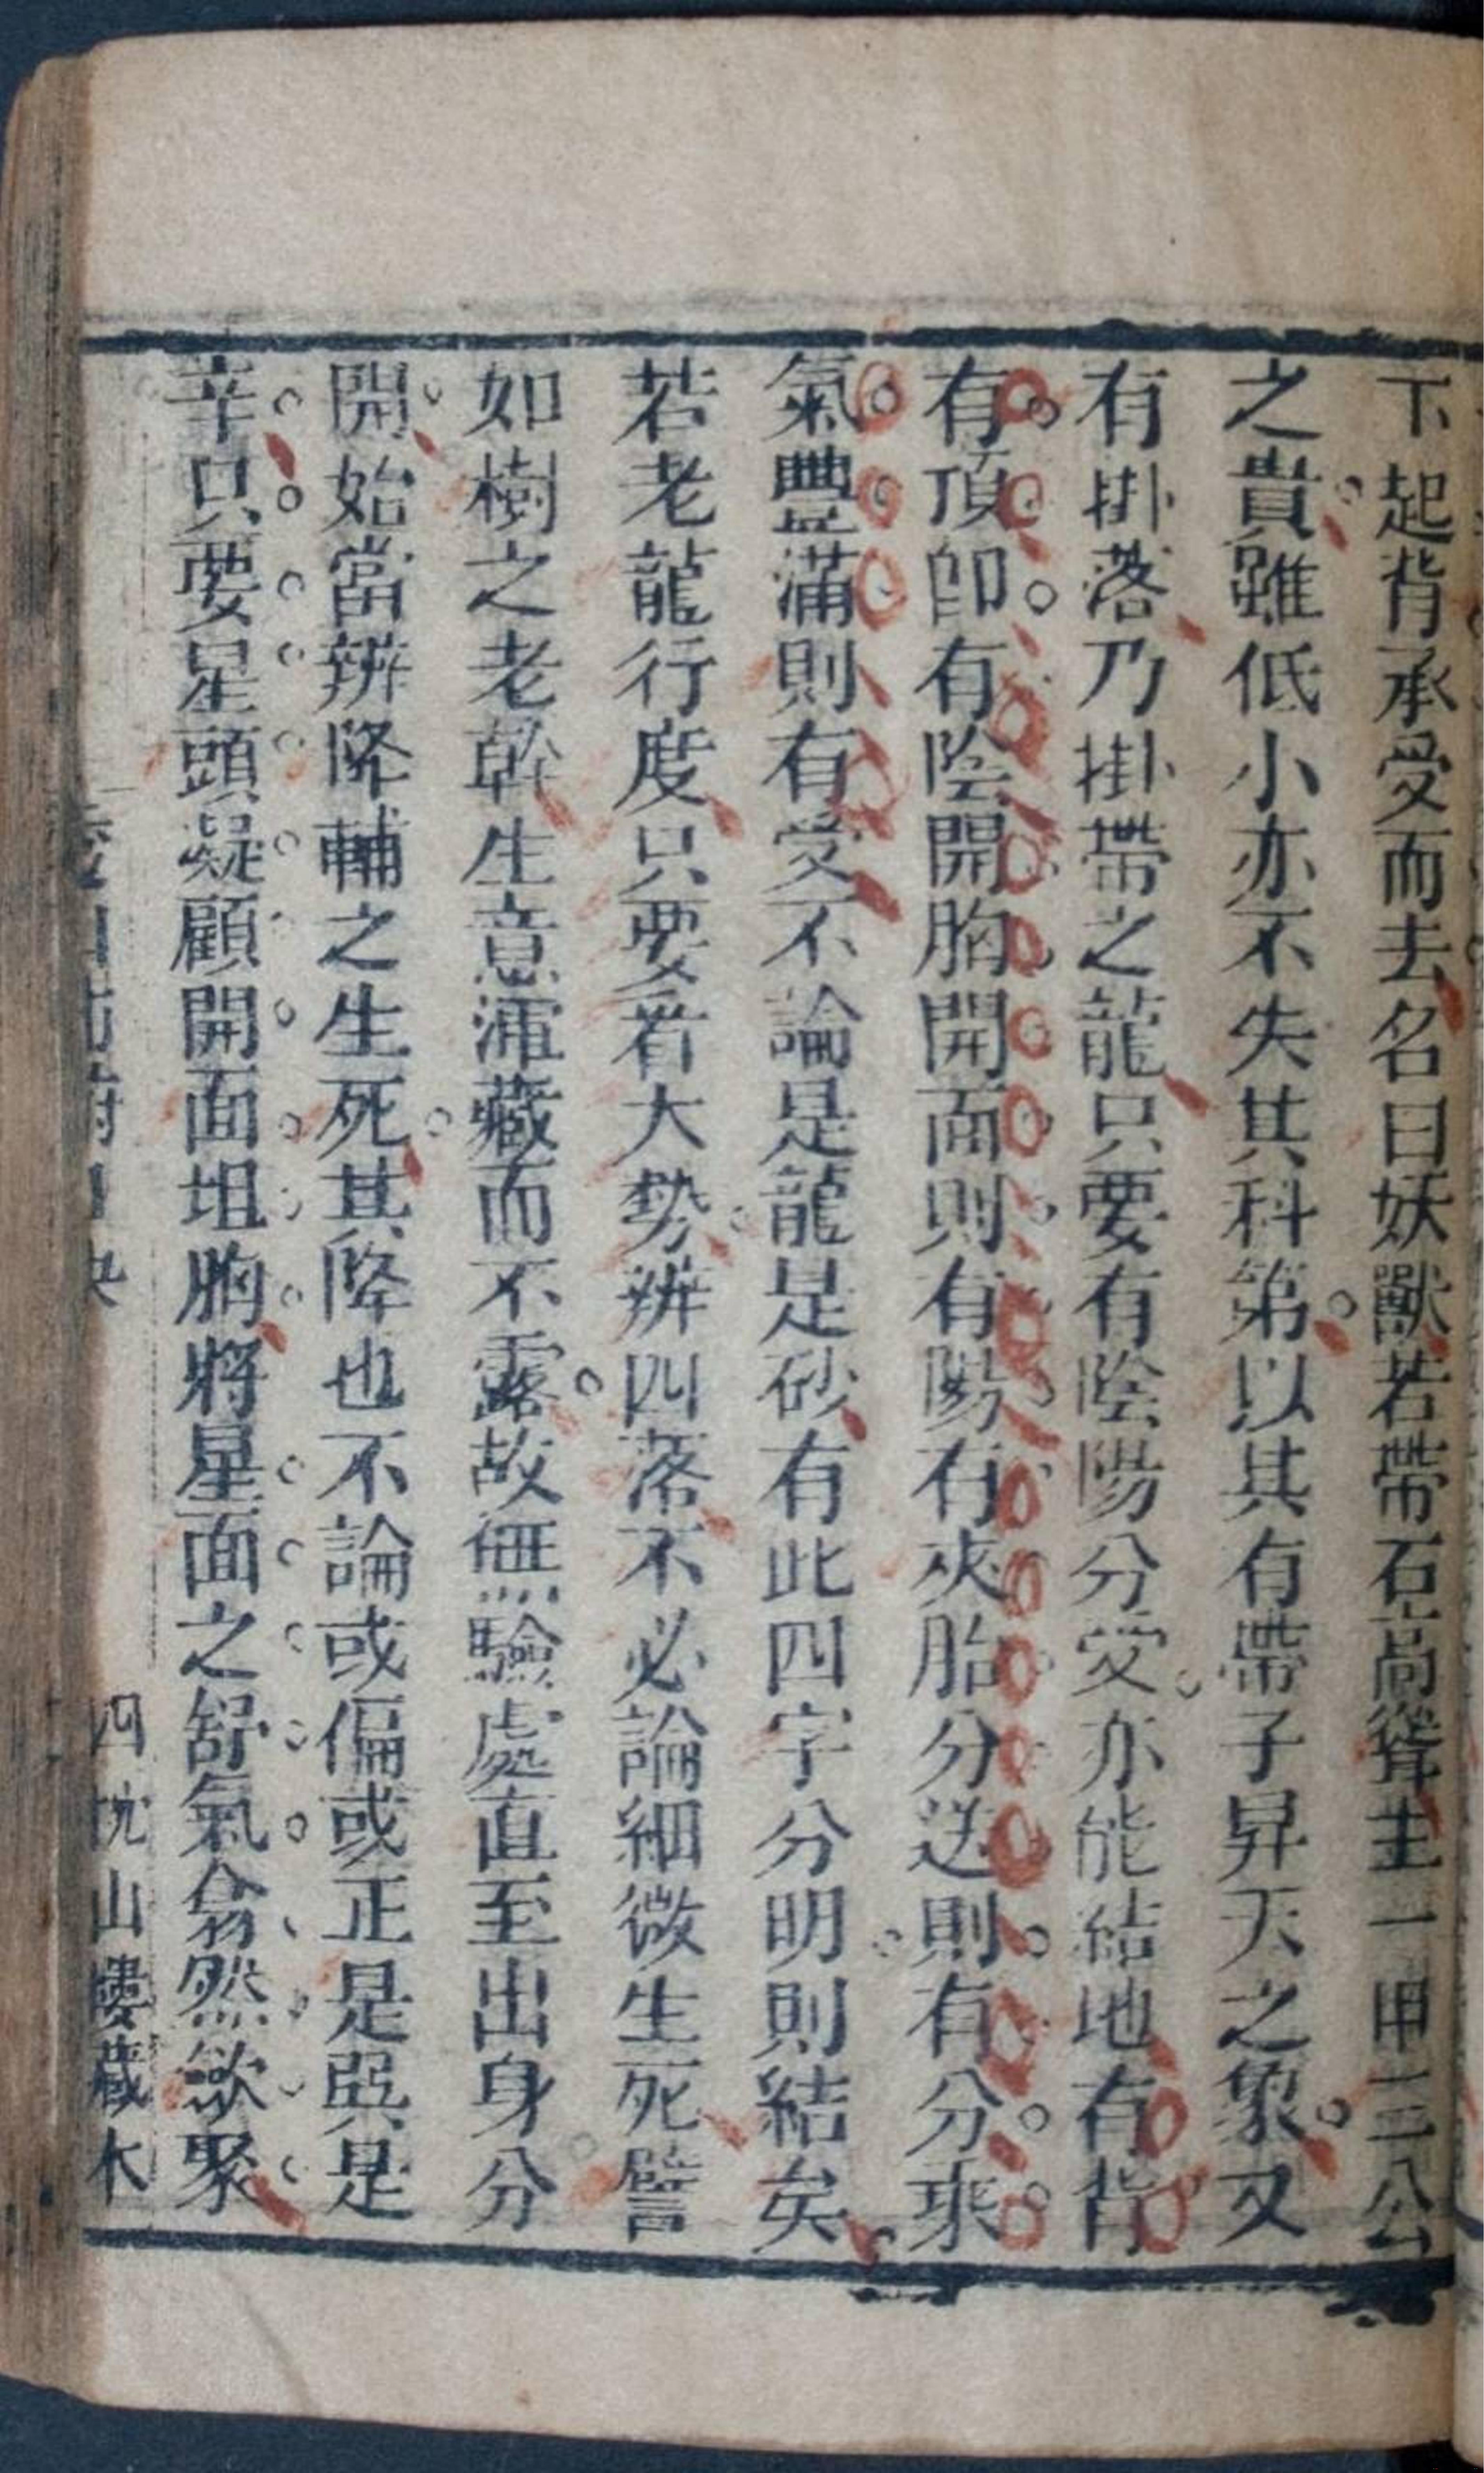 下起背承受而去名曰妖獸若帶石高聳主一甲二三公
之貴雖低小亦不失其科第以其有帶子昇天之象又
有掛落乃掛帶之龍只要有陰陽分受亦能結地有背
有頂卽有陰開胸開面則有陽有夾胎分送則有分乘
氣豐滿則有受不論是龍是砂有此四字分明則結矣
若老龍行度只要看大勢辨四落不必論細微生死譬
如樹之老幹生意渾藏而不露故無驗處直至出身分
開始當辨降輔之生死其降也不論或偏或正是與是
辛只要星頭凝顧開面坦胸將星面之舒氣翕然歛聚
四 山樓藏木